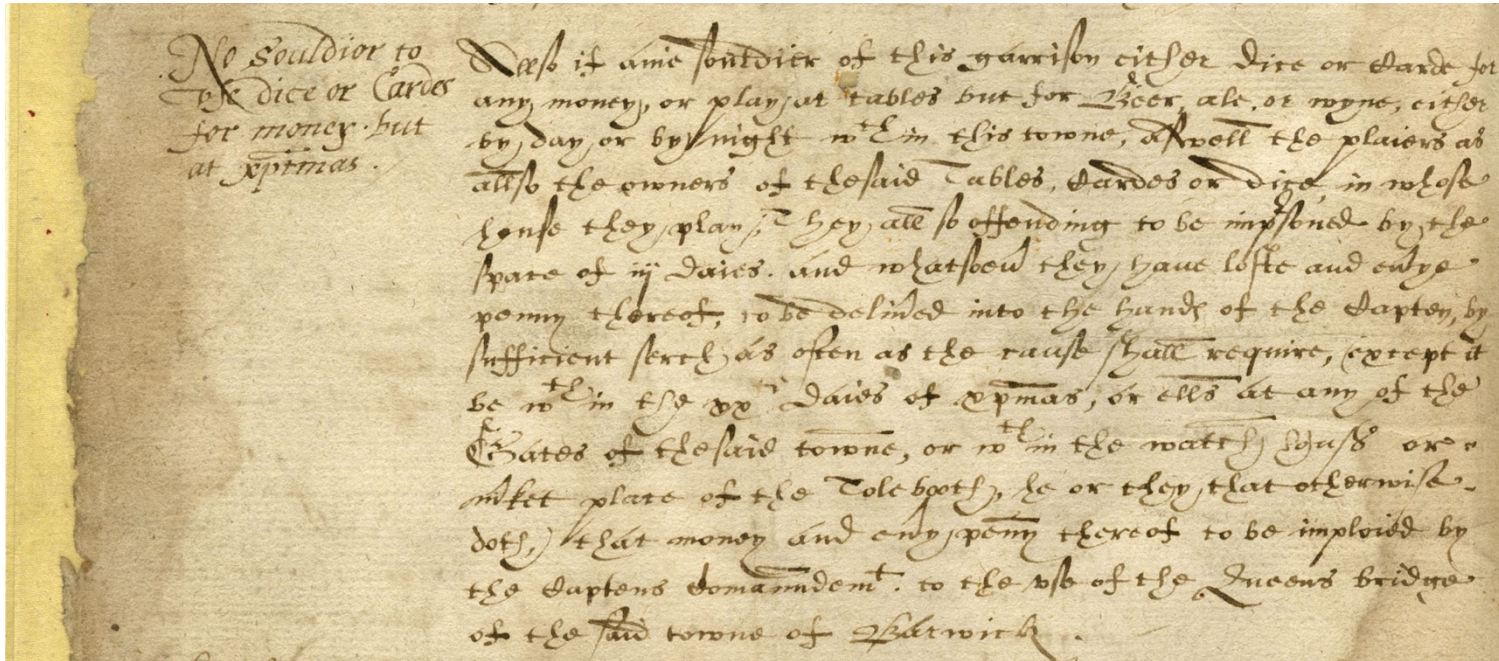 No Souldior to
Vse dice or Cardes
for money but
at xp̄tmas.
Allso if anie souldier of this garrison either dice or Carde for
any money, or play at tables but for Beer, ale, or wyne, either
by day, or by night wth in this towne, aswell the plaiers as
allso the owners of thesaid Tables, Cardes or dice, in whose
house they play; They all so offending to be impsoned by the
space of iij daies. and whatsoeu they haue loste and eu'ye
penny thereof, to be deliu'ed into the hands of the Capten, by
sufficient serch, as often as the cause shall require, (except it
be wth in the xx daies of xp̄mas, or ells at any of the
Gates of thesaid towne, or wth in the watch house or
m'ket place of the Tolebooth, he or they that otherwise
doth,) that money and eu'y penny thereof to be imploied by
the Captens Comaundemt. to the vse of the Queens bridge
of the said towne of Barwick.